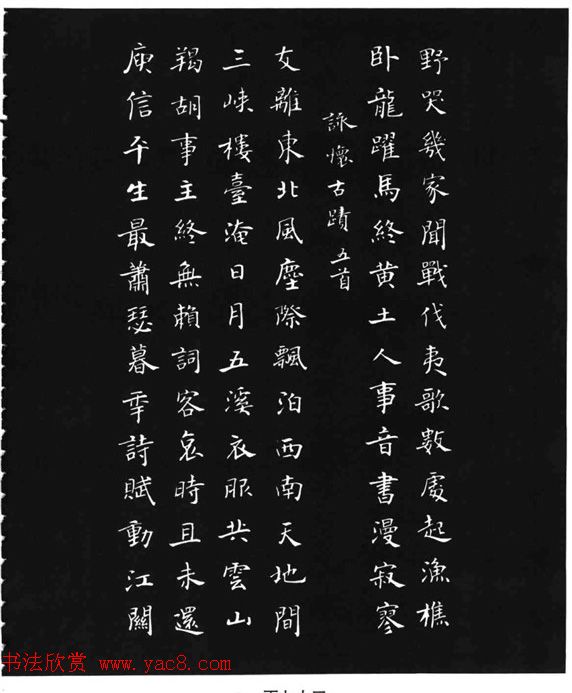 野哭幾家聞戰伐夷歌數處起漁樵
卧龍躍馬終黄土人事音書漫寂寥
詠懷古蹟五首
支離東北風塵際飄泊西南天地間
三峽樓臺淹日月五溪衣服共雲山
羯胡事主終無賴詞客哀時且未還
庾信平生最蕭瑟暮年詩賦動江關
书法欣赏 www.yac8.com